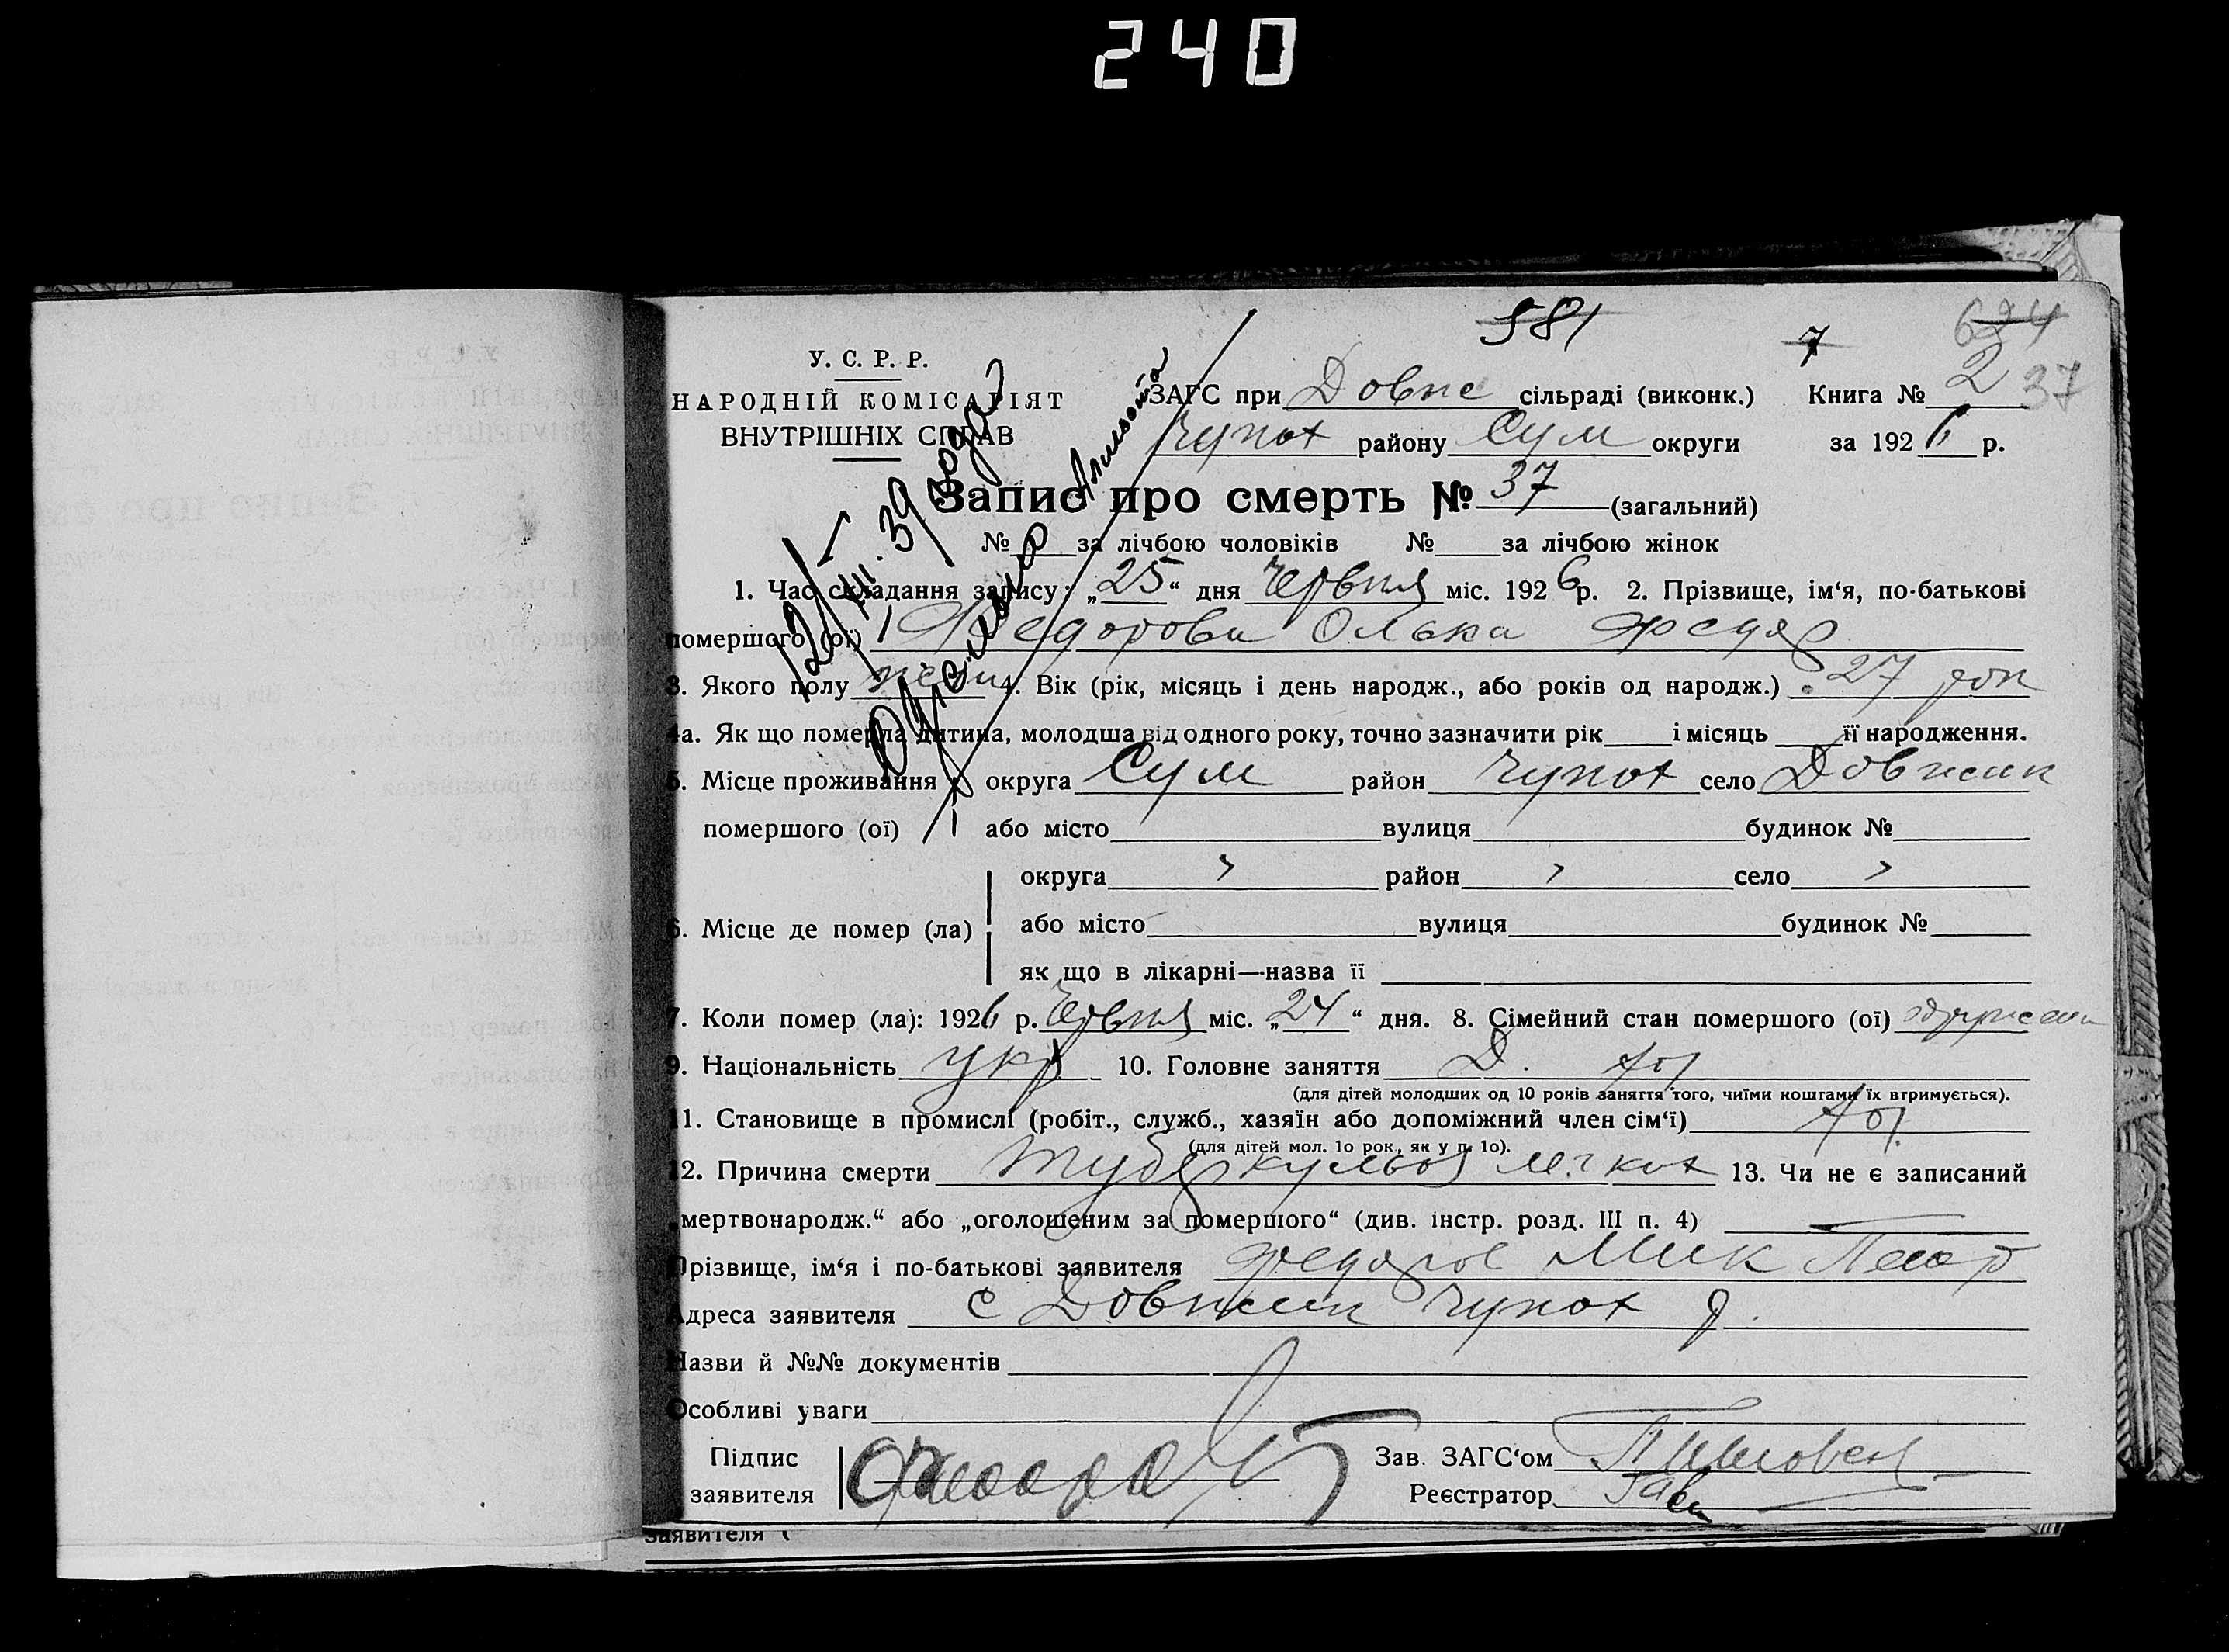 240
581
7
694
37
У. С. Р. Р.
НАРОДНІЙ КОМІСАРІЯТ
ВНУТРІШНІХ СПРАВ
ЗАГС при Довже сільраді (виконк.) Книга № 2
Чупах району Сум округи за 1926 р.
Запис про смерть № 37 (загальний)
№ за лічбою чоловіків № за лічбою жінок
1. Час складання запису: „25“ дня Червня міс. 1926 р. 2. Прізвище, ім‘я, по-батькові
помершого (ої) Федорова Олька Федор
3. Якого полу жен 4. Вік (рік, місяць і день народж., або років од народж.) 27 рок
4а. Як що померла дитина, молодша від одного року, точно зазначити рік і місяць її народження.
5. Місце проживання округа Сум район Чупах село Довжик
помершого (ої) або місто вулиця будинок №
округа район село
6. Місце де помер (ла) або місто вулиця будинок №
як що в лікарні—назва її
7. Коли помер (ла): 1926 р. Червня міс. „24“ дня. 8. Сімейний стан помершого (ої)
9. Національність укр 10. Головне заняття
(для дітей молодших од 10 років заняття того, чиїми коштами їх втримується).
11. Становище в промислі (робіт., служб., хазяїн або допоміжний член сім‘ї)
(для дітей мол. 1о рок., як у п. 1о).
12. Причина смерти туберкульоз легких 13. Чи не є записаний
„мертвонародж.“ або „оголошеним за помершого“ (див. інстр. розд. III п. 4) —
Прізвище, ім‘я і по-батькові заявителя Федоров Мик
Адреса заявителя с Довжик Чупах р.
Назви й №№ документів
Особливі уваги
Підпис
заявителя
Зав. ЗАГС‘ом
Реєстратор
заявителя (
12/VIII. 39 года